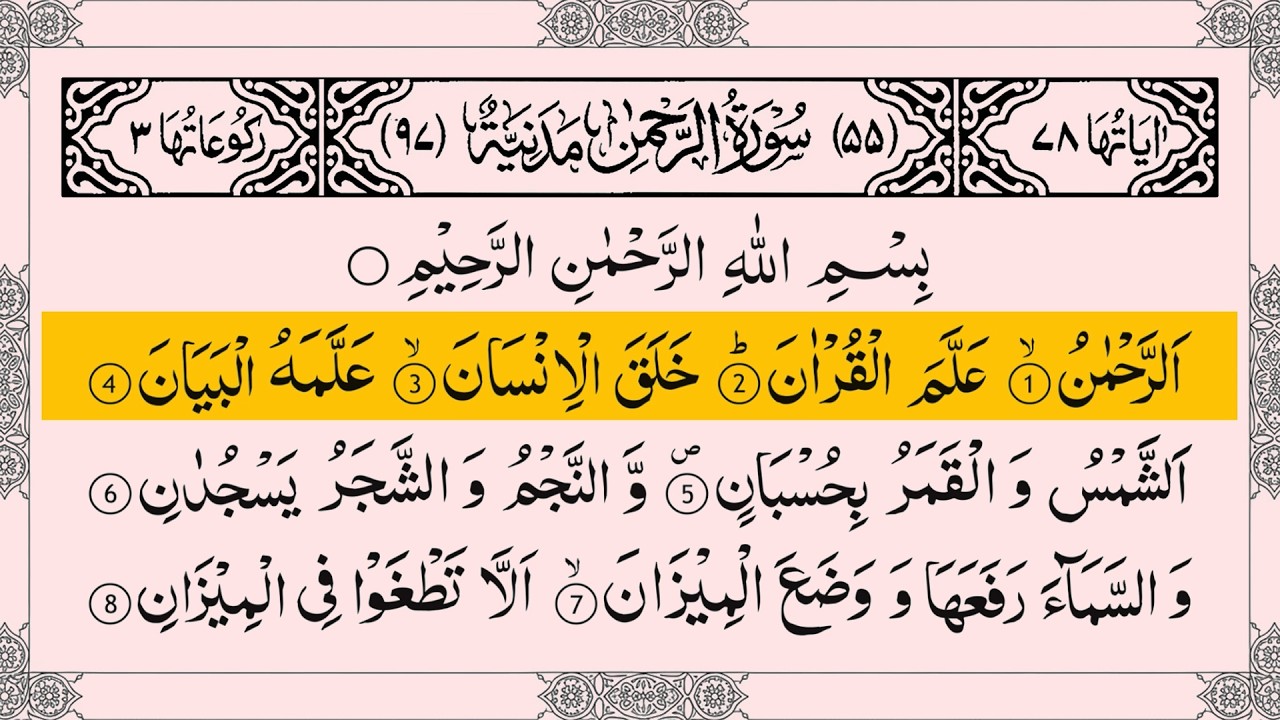 اٰيَاتُهَا ٧٨ (٥٥) سُوْرَةُ الرَّحْمٰنِ مَدَنِيَّةٌ (٩٧) رُكُوْعَاتُهَا ٣
بِسْمِ اللّٰهِ الرَّحْمٰنِ الرَّحِيْمِ ○
اَلرَّحْمٰنُ ۙ① عَلَّمَ الْقُرْاٰنَ ؕ② خَلَقَ الْاِنْسَانَ ۙ③ عَلَّمَهُ الْبَيَانَ ④
اَلشَّمْسُ وَ الْقَمَرُ بِحُسْبَانٍ ۪⑤ وَّ النَّجْمُ وَ الشَّجَرُ يَسْجُدٰنِ ⑥
وَ السَّمَآءَ رَفَعَهَا وَ وَضَعَ الْمِيْزَانَ ۙ⑦ اَلَّا تَطْغَوْا فِى الْمِيْزَانِ ⑧